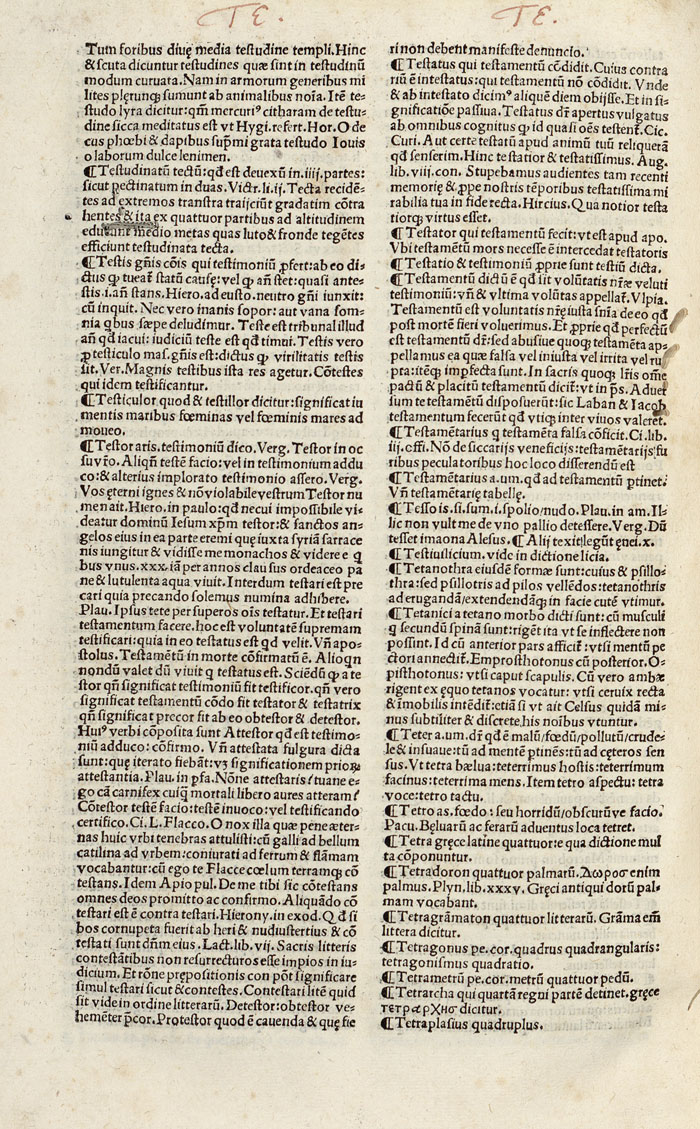 TE. TE.
Tum foribus diuę media testudine templi. Hinc
& scuta dicuntur testudines quæ sint in testudinū
modum curuata. Nam in armorum generibus mi
lites plęrunq; sumunt ab animalibus noīa. Itē te-
studo lyra dicitur: qm̄ mercuriꝰ citharam de testu-
dine sicca meditatus est vt Hygi. refert. Hor. O de
cus phœbi & dapibus sup̄mi grata testudo Iouis
o laborum dulce lenimen.
¶ Testudinatū tectū: qđ est deuexū in .iiij. partes:
sicut pectinatum in duas. Victr. li. ij. Tecta recidē-
tes ad extremos transtra traijciūt gradatim cōtra
hentes & ita ex quattuor partibus ad altitudinem
educant medio metas quas luto & fronde tegētes
efficiunt testudinata tecta.
¶ Testis gn̄is cōis qui testimoniū ꝓfert: ab eo di-
ctus ꝙ tueat̄ statū causę: vel ꝙ an̄ stet: quasi ante-
stis .i. an̄ stans. Hiero. ad eusto. neutro gn̄i iunxit:
cū inquit. Nec vero inanis sopor: aut vana som-
nia qbus sæpe deludimur. Teste est tribunal illud
an̄ qđ iacui: iudiciū teste est qđ timui. Testis vero
ꝓ testiculo mas. gn̄is est: dictus ꝙ virilitatis testis
sit. Ver. Magnis testibus ista res agetur. Cōtestes
qui idem testificantur.
¶ Testiculor quod & testillor dicitur: significat iu
mentis maribus fœminas vel fœminis mares ad
moueo.
¶ Testor aris. testimoniū dico. Verg. Testor in oc
su vr̄o. Aliqn̄ testē facio: vel in testimonium addu
co: & alterius implorato testimonio assero. Verg.
Vos ęterni ignes & nō violabile vestrum Testor nu
men ait. Hiero. in paulo: qđ ne cui impossibile vi-
deatur dominū Iesum xp̄m testor: & sanctos an-
gelos eius in ea parte eremi quę iuxta syriā sarrace
nis iungitur & vidisse me monachos & videre e q
bus vnus .xxx. iā per annos clausus ordeaceo pa
ne & lutulenta aqua viuit. Interdum testari est pre
cari quia precando solemus numina adhibere.
Plau. Ipsus tete per superos oīs testatur. Et testari
testamentum facere. hoc est voluntatē supremam
testificari: quia in eo testatus est qđ velit. Vn̄ apo-
stolus. Testamētū in morte cōfirmatū ē. Alioqn
nondū valet dū viuit q testatus est. Sciēdū ꝙ a te
stor qn̄ significat testimoniū fit testificor. qn̄ vero
significat testamentū cōdo fit testator & testatrix
qn̄ significat precor fit ab eo obtestor & detestor.
Huiꝰ verbi cōposita sunt Attestor qđ est testimo-
niū adduco: cōfirmo. Vn̄ attestata fulgura dicta
sunt: quę iterato fiebāt: vʒ significationem priorʒ
attestantia. Plau. in psa. Nōne attestaris / tu ane e-
go cā carnifex cuiq; mortali libero aures atteram /
Cōtestor testē facio: testē inuoco: vel testificando
certifico. Ci. L. Flacco. O nox illa quæ penę æter-
nas huic vrbi tenebras attulisti: cū galli ad bellum
catilina ad vrbem: coniurati ad ferrum & flāmam
vocabantur: cū ego te Flacce cœlum terramq; cō
testans. Idem Apio pul. De me tibi sic cōtestans
omnes deos promitto ac confirmo. Aliquādo cō
testari est ē contra testari. Hierony. in exod. Qđ si
bos cornupeta fuerit ab heri & nudiustertius & cō
testati sunt dn̄m eius. Lact. lib. vij. Sacris litteris
contestātibus non resurrecturos esse impios in iu-
dicium. Et rōne prępositionis con pōt significare
simul testari sicut & contestes. Contestari litē quid
sit vide in ordine litterarū. Detestor: obtestor ve-
hemēter p̄cor. Protestor quod ē cauenda & quę fie
ri non debent manifeste denuncio.
¶ Testatus qui testamentū cōdidit. Cuius contra
riū ē intestatus: qui testamentū nō cōdidit. Vnde
& ab intestato dicimꝰ aliquē diem obijsse. Et in si-
gnificatiōe passiua. Testatus dr̄ apertus vulgatus
ab omnibus cognitus ꝙ id quasi oēs testent̄. Cic.
Curi. Aut certe testatū apud animū tuū relinquerā
qđ senserim. Hinc testatior & testatissimus. Aug.
lib. viij. con. Stupebamus audientes tam recenti
memorię & ꝓpe nostris tēporibus testatissima mi
rabilia tua in fide recta. Hircius. Qua notior testa
tiorq; virtus esset.
¶ Testator qui testamentū fecit: vt est apud apo.
Vbi testamētū mors necesse ē intercedat testatoris
¶ Testatio & testimoniū ꝓprie sunt testiū dicta.
¶ Testamentū dictū ē qđ sit voluntatis nr̄æ veluti
testimoniū: vn̄ & vltima volūtas appellat̄. Vlpia.
Testamentū est voluntatis nr̄ę iusta snīa de eo qđ
post mortē fieri voluerimus. Et ꝓprie qđ perfectū
est testamentū dr̄: sed abusiue quoq; testamēta ap-
pellamus ea quæ falsa vel iniusta vel irrita vel ru
pta: itēq; imp̄fecta sunt. In sacris quoq; lr̄is om̄e
pactū & placitū testamentū dicit̄: vt in ps̄. Aduer
sum te testamētū disposuerūt: sic Laban & Iacob
testamentum fecerūt qđ vtiq; inter viuos valeret.
¶ Testamētarius q testamēta falsa cōficit. Ci. lib.
iij. offi. Nō de siccarijs veneficijs: testamētarijs fu
ribus peculatoribus hoc loco differendū est
¶ Testamētarius a. um. qđ ad testamentū ptinet.
Vn̄ testamētarię tabellę.
¶ Tesso is. si. sum. i. spolio / nudo. Plau. in am. Il-
lic non vult me de vno pallio detessere. Verg. Dū
tesset imaona Alesus. ¶ Alij texit legūt ęnei. x.
¶ Testiuslicium. vide in dictione licia.
¶ Tetanothra eiusdē formæ sunt: cuius & psillo-
thra: sed psillotris ad pilos vellēdos: tetanothris
ad erugandā / extendendāq; in facie cutē vtimur.
¶ Tetanici a tetano morbo dicti sunt: cū musculi
q secundū spinā sunt: rigēt ita vt se inflectere non
possint. Id cū anterior pars afficit̄: vt si mentū pe
ctori annectit̄. Emprosthotonus cū posterior. O-
pisthotonus: vt si caput scapulis. Cū vero ambæ
rigent ex ęquo tetanos vocatur: vt si ceruix recta
& īmobilis intēdit̄: etiā si vt ait Celsus quidā mi-
nus subtiliter & discrete, his noībus vtuntur.
¶ Teter a. um. dr̄ qđ ē malū / fœdū / pollutū / crude-
le & insuaue: tū ad mentē ptinēs: tū ad cęteros sen
sus. Vt tetra bælua: teterrimus hostis: teterrimum
facinus: teterrima mens. Item tetro aspectu: tetra
voce: tetro tactu.
¶ Tetro as. fœdo: seu horridū / obscurūve facio.
Pacu. Bęluarū ac ferarū aduentus loca tetret.
¶ Tetra gręce latine quattuor: e qua dictione mul
ta cōponuntur.
¶ Tetradoron quattuor palmarū. Δωροσ enim
palmus. Plyn. lib. xxxv. Gręci antiqui dorū pal-
mam vocabant.
¶ Tetragrāmaton quattuor litterarū. Grāma em̄
littera dicitur.
¶ Tetragonus pe. cor. quadrus quadrangularis:
tetragonismus quadratio.
¶ Tetrametrū pe. cor. metrū quattuor pedū.
¶ Tetrarcha qui quartā regni partē detinet. gręce
τετραρχησ dicitur.
¶ Tetraplasius quadruplus.